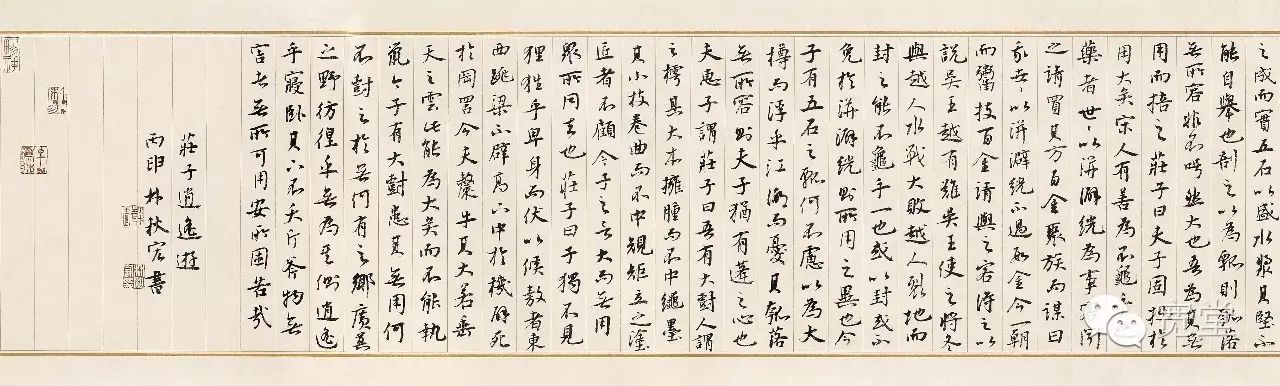 之成而實五石以盛水漿其堅不
能自舉也剖之以為瓢則瓠落
無所容非不呺然大也吾為其無
用而掊之莊子曰夫子固拙於
用大矣宋人有善為不龜
藥者世〻以洴澼絖為事
之請買其方百金聚族而謀曰
我世〻以洴澼絖不過數金今一朝
而鬻技百金請與之客得之以
說吳王越有難吳王使之將冬
與越人水戰大敗越人裂地而
封之能不龜手一也或以封或不
免於洴澼絖則所用之異也今
子有五石之瓠何不慮以為大
樽而浮乎江湖而憂其瓠落
無所容則夫子猶有蓬之心也
夫惠子謂莊子曰吾有大樹人謂
之樗其大本擁腫而不中繩墨
其小枝卷曲而不中規矩立之塗
匠者不顧今子之言大而無用
眾所同去也莊子曰子獨不見
狸狌乎卑身而伏以候敖者東
西跳梁不辟高下中於機辟死
於罔罟今夫斄牛其大若垂
天之雲此能為大矣而不能執
鼠今子有大樹患其無用何
不樹之於無何有之鄉廣莫
之野彷徨乎無為其側逍遙
乎寢臥其下不夭斤斧物無
害者無所可用安所困苦哉
莊子逍遙遊
丙申林扶宏書
堂